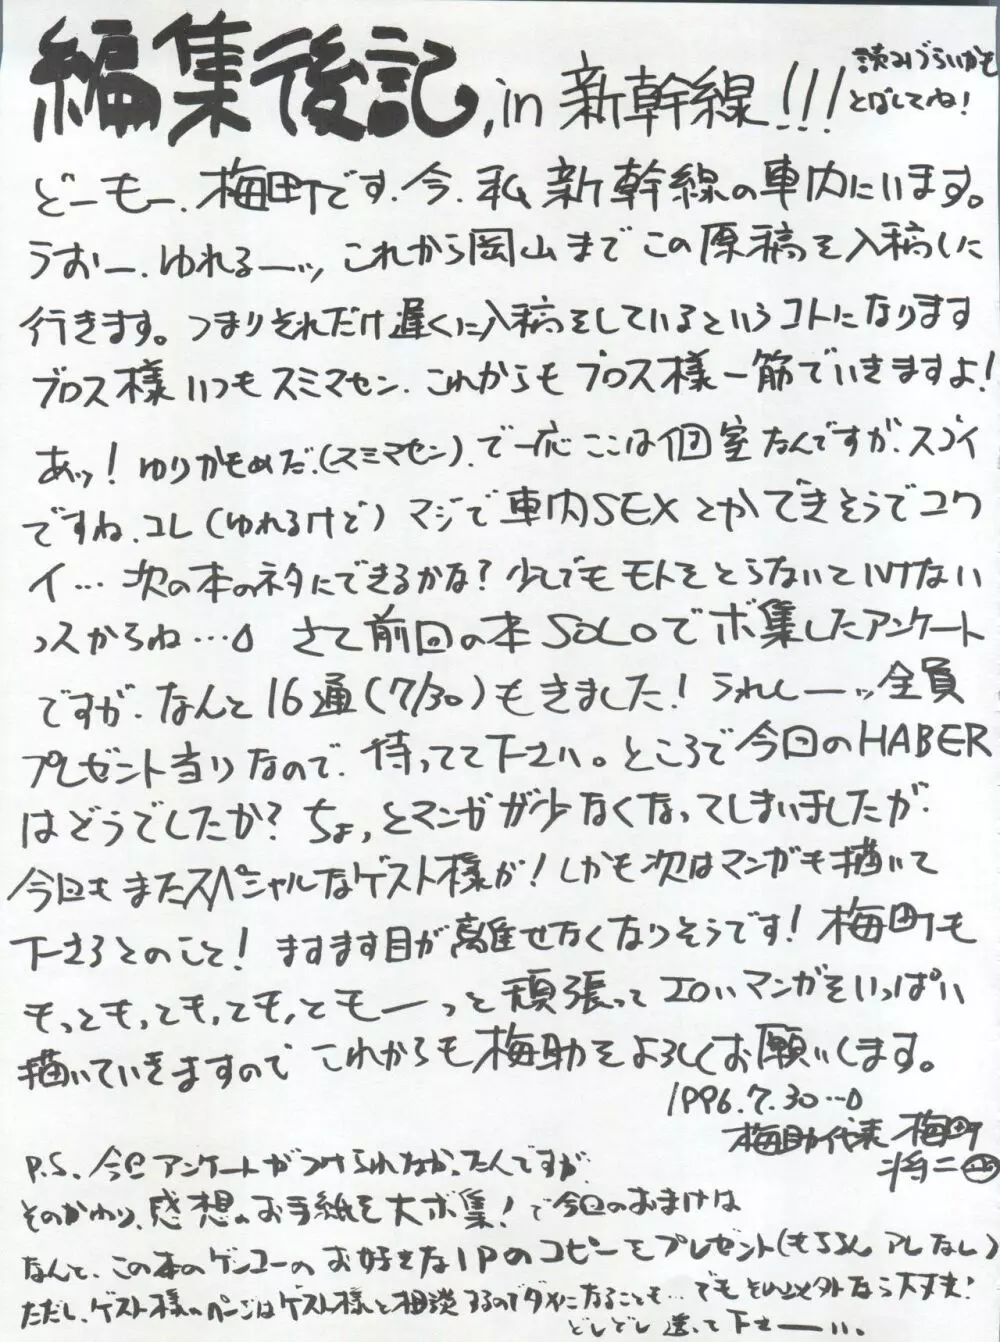 編集後記, in 新幹線!!!
読みづらいかも
とばしてね!
どーもー、梅町です。今、私新幹線の車内にいます。
うおー、ゆれるーッ、これから岡山までこの原稿を入稿しに
行きます。つまりそれだけ遅くに入稿をしているというコトになります
ブロス様いつもスミマセン、これからもブロス様一筋でいきますよ!
あッ!ゆりかもめだ、(スミマセン)、で一応ここは個室なんですが、スゴイ
ですね、コレ(ゆれるけど)マジで車内SEXとかできそうでコワ
イ…次の本のネタにできるかな?少しでもモトをとらないといけない
っスからね…。さて前回の本SOLOでボ集したアンケート
ですが、なんと16通(7/30)もきました!うれしーーッ全員
プレゼント当りなので、待ってて下さい。ところで今回のHABER
はどうでしたか?ちょっとマンガが少なくなってしまいましたが、
今回もまたスペシャルなゲスト様が!しかも次はマンガも描いて
下さるとのこと!ますます目が離せなくなりそうです!梅町も
もっともっとも,ても,ともーっと頑張ってエロいマンガをいっぱい
描いていきますのでこれからも梅助をよろしくお願いします。
1996.7.30…。
梅助代表 梅町
将二
P.S. 今回アンケートがつけられなかったんですが、
そのかわり、感想のお手紙を大ボ集!で今回のおまけは
なんと、この本のゲンコーのお好きな1Pのコピーをプレゼント(もちろん。アレなし)
ただし、ゲスト様のページはゲスト様と相談するのでダメになることも…でもそれ以外なら大丈夫!
どしどし送って下さーーい。